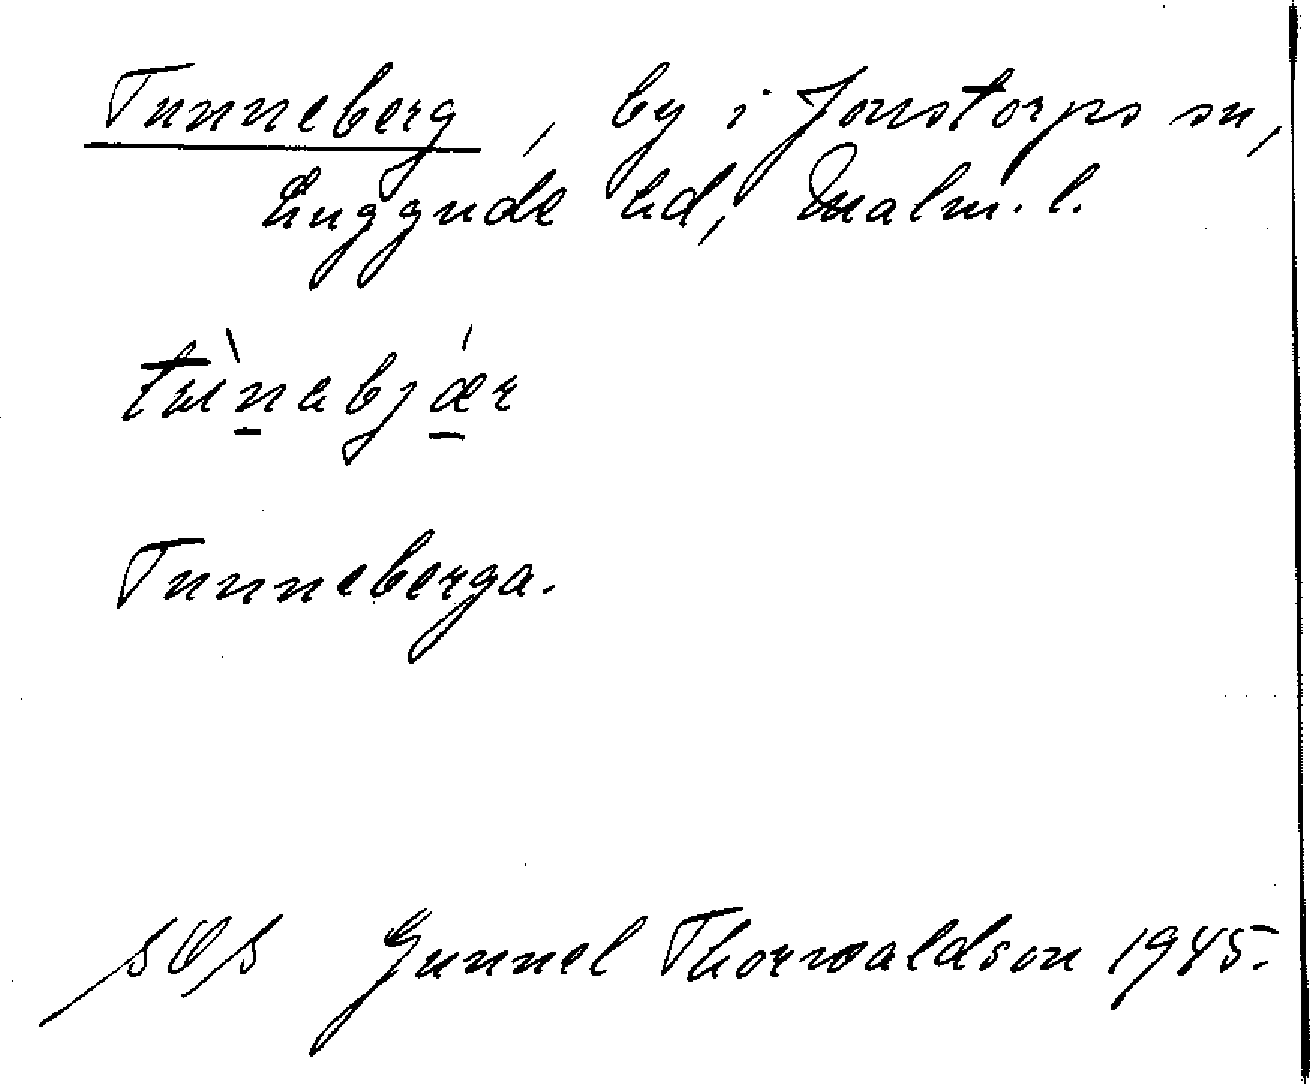 Tunneberg, by i Jonstorps sn,
Luggude hd, Malm. l.
Tunneberga.
Gunnel Thorwaldson 1945.